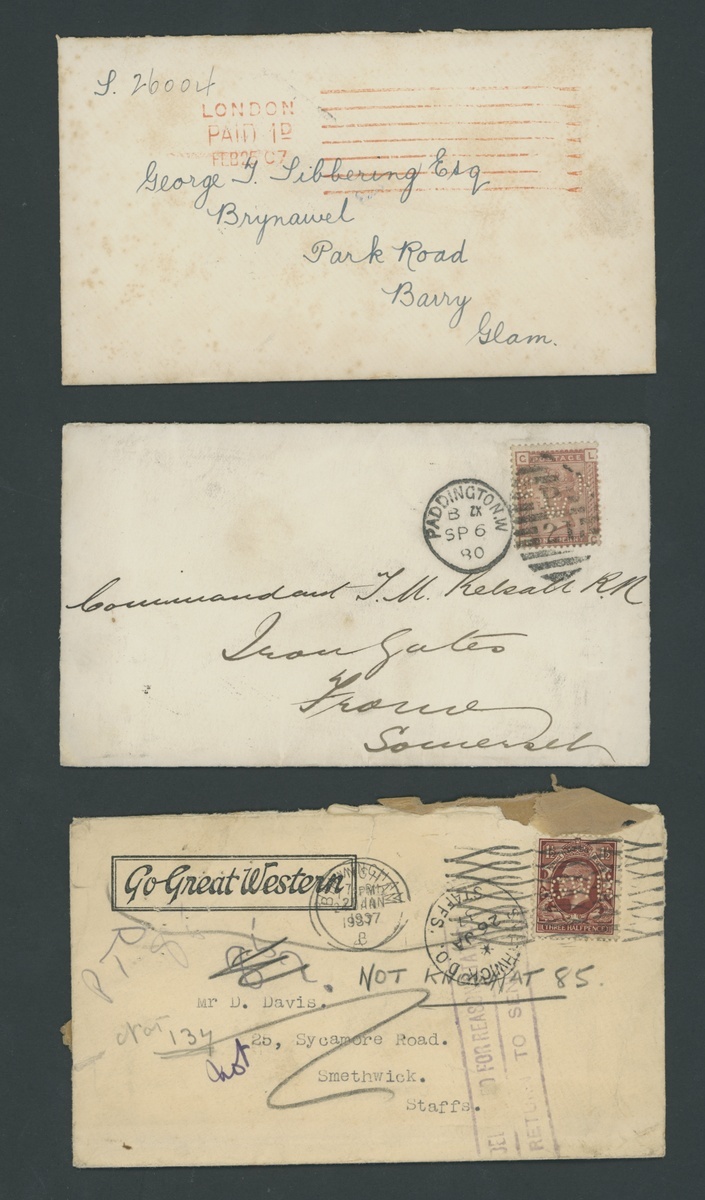 S. 26004
LONDON
PAID 1D
FEB 25 07
George T. Sibbering Esq
Brynawel
Park Road
Barry
Glam.
PADDINGTON.W
B ZX
SP 6
80
G POSTAGE L
Commandant T.M. Kelsall R.N
Iron Gates
Frome
Somerset
Go Great Western
1937
SMETHWICK D.O.
STAFFS.
26 JA
THREE HALFPENCE
PTO
NOT KNOWN AT 85.
Mr D. Davis.
Not 134
25, Sycamore Road.
not
Smethwick.
Staffs.
FOR REASON
RETURN TO SEN